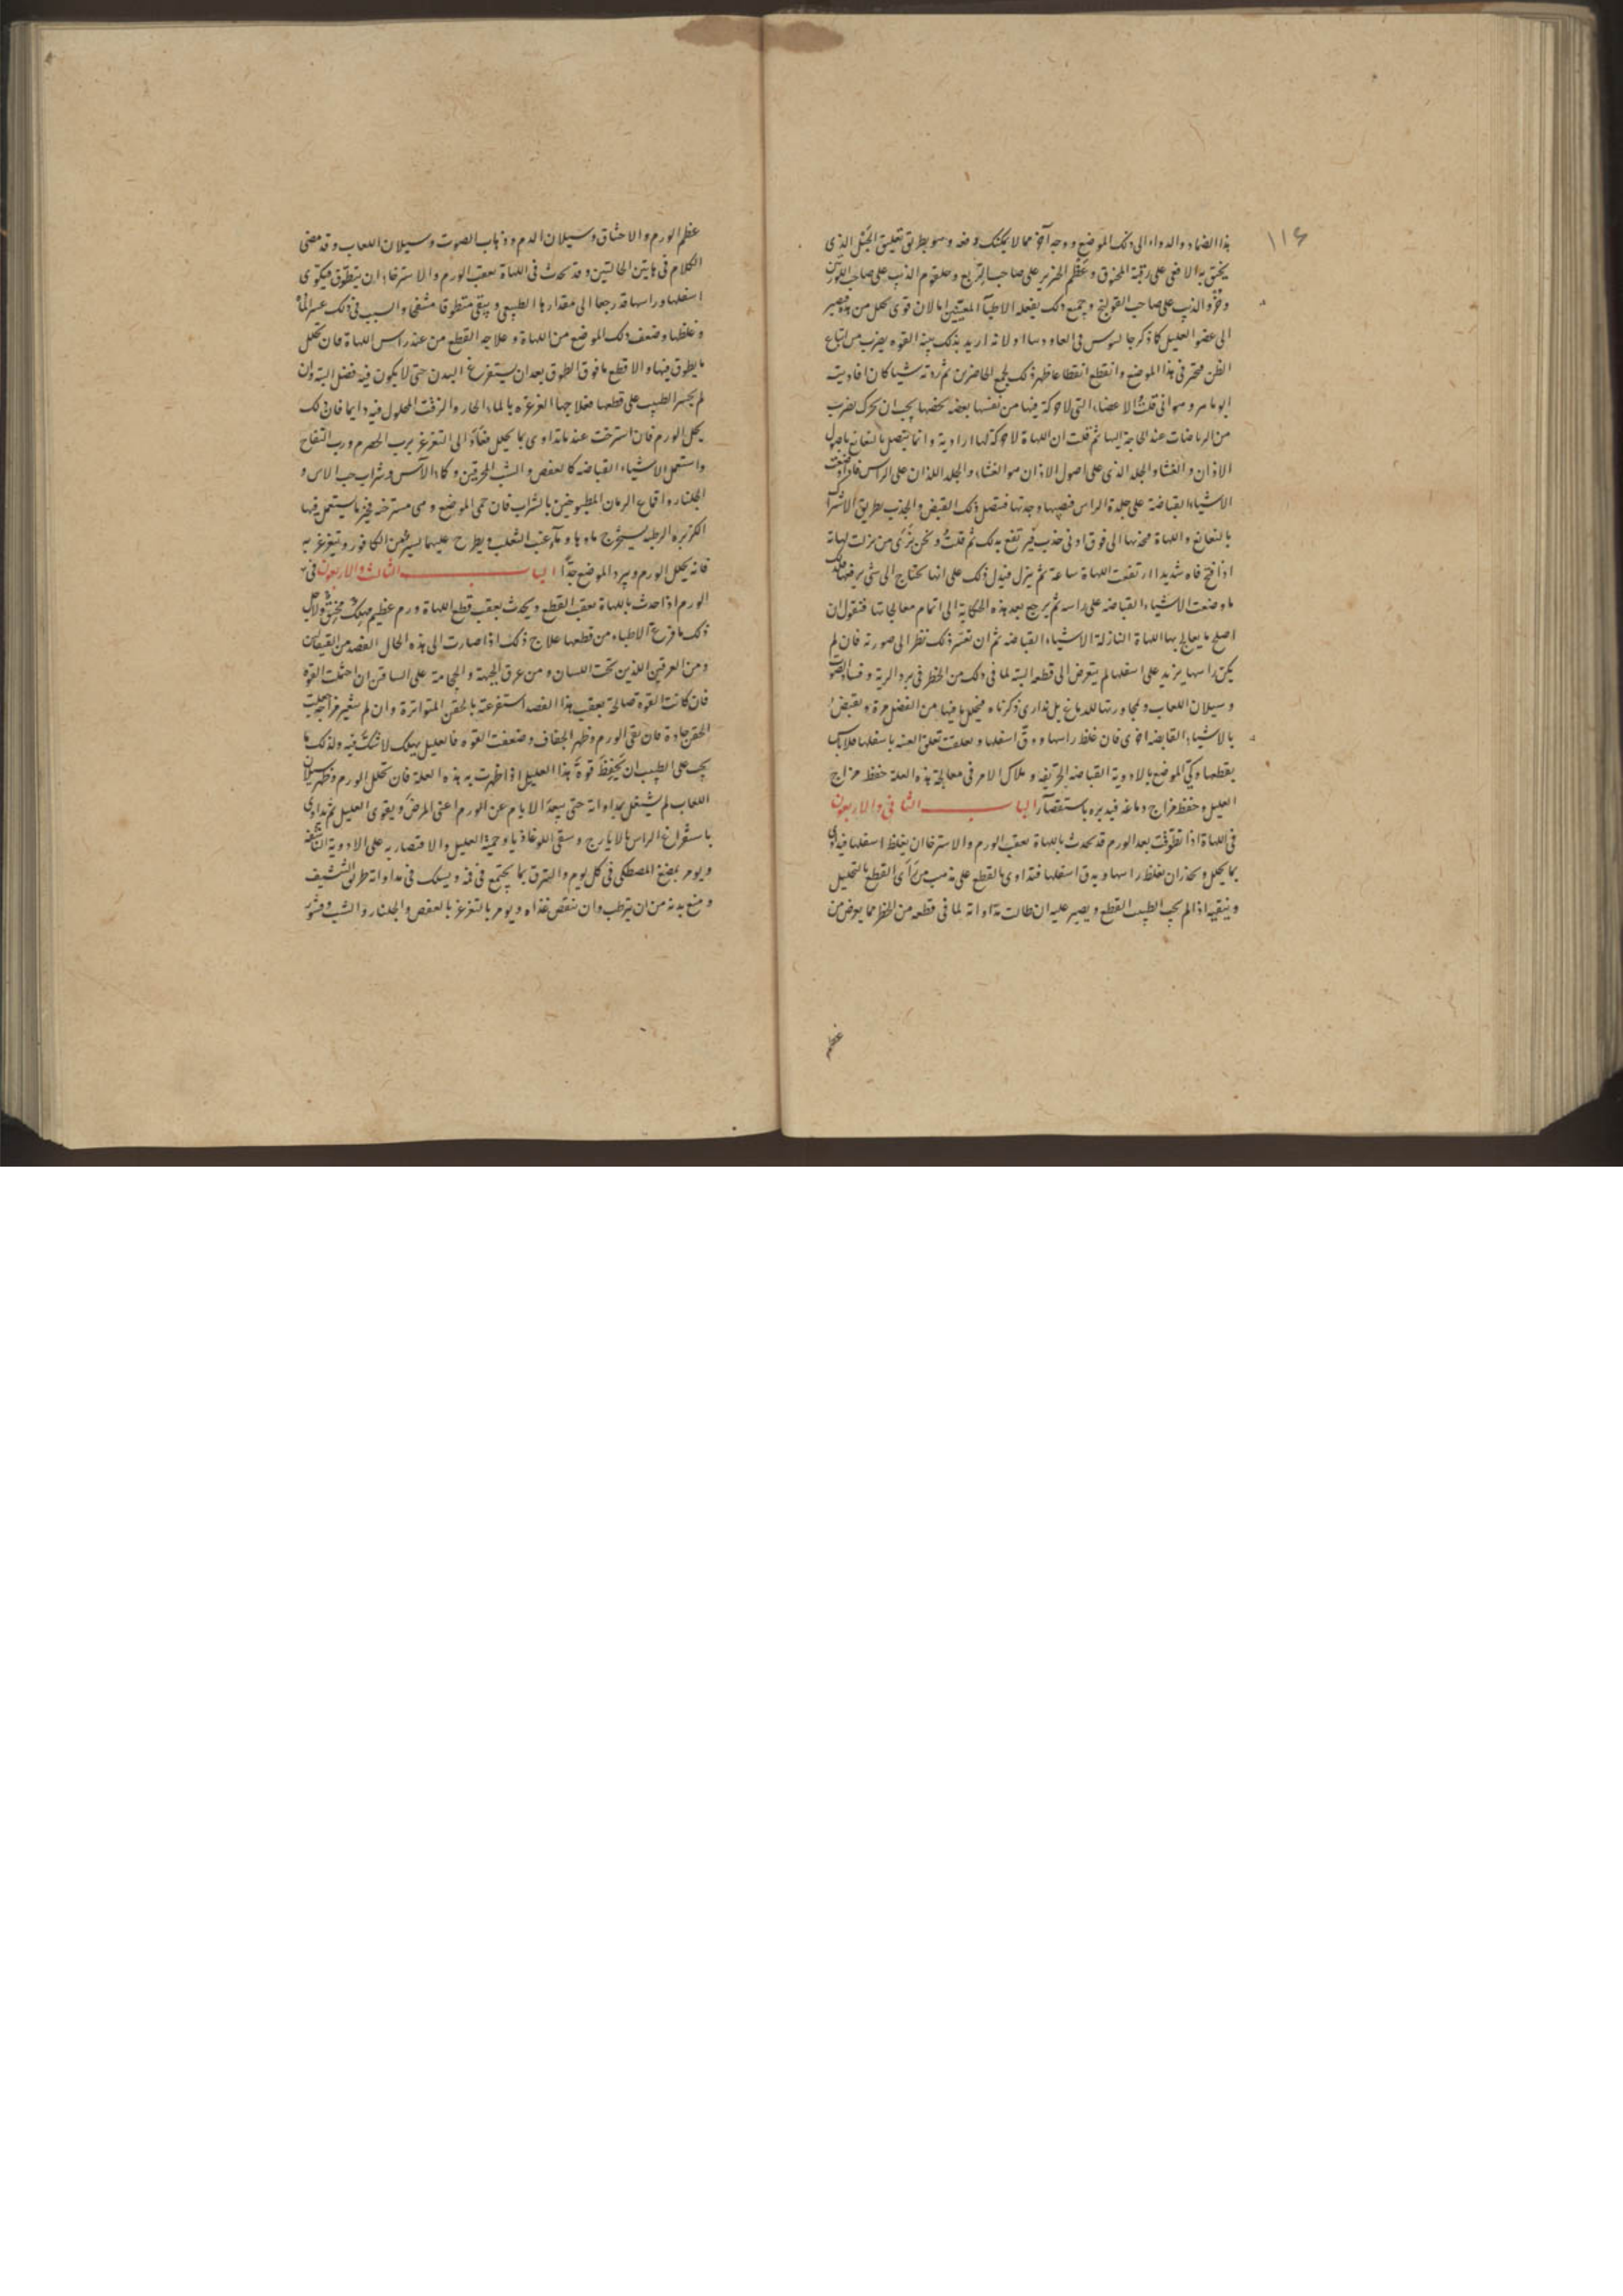 ١١٤
هذا الضماد والدواء الى ذلك الموضع ووجه آخر مما لا يمكنك دفعه وهو بطريق تعليق الحبل الذي
يخنق به الافعى على رقبة المخنوق وعظم الخنزير على صاحب الربع وحلقوم الذيب على صاحب
وخرو الذيب على صاحب القولنج وجميع ذلك يفعله الاطباء اما لان قوى تحلل من هذه فيصير
الى عضو العليل كما ذكر جالينوس في الفاوونيا او لانه اريد بذلك بينة القوة يضرب من اتباع
الظن فتحير في هذا الموضع وانقطع انقطاعا ظهر ذلك لجمع الحاضرين ثم زدته شيا كان افادنيه
ابو ماهر وهو اني قلت الاعضاء التي لا حركة فيها من نفسها بعضه بحضها يجب ان يحرك بضرب
من الرياضات عند الحاجة اليها ثم قلت ان اللهاة لا حركة لها ارادية وانما يتصل بالنغانغ باصول
الاذان والغشا والجلد الذي على اصول الاذان هو الغشاء والجلد اللذان على الراس فاذا وضعت
الاشياء القباضة على جلدة الراس قبضها وجذبها فيتصل ذلك القبض والجذب بطريق الاشتراك
بالنغانغ واللهاة فجذبها الى فوق ادنى جذب فيرتفع بذلك ثم قلت ونحن نرى من نزلت لهاته
اذا فتح فاه شديدا ارتفعت اللهاة ساعة ثم ينزل فيدل ذلك على انها تحتاج الى شي يرفعها
ما وضعت الاشياء القباضه على راسه ثم يرجع بعد هذه الحكاية الى اتمام معالجاتها فنقول ان
اصلح ما يعالج بها اللهاة النازلة الاشياء القباضه ثم ان تعسر ذلك نظر الى صورته فان لم
يكن راسها يزيد على اسفلها لم يتعرض الى قطعه البتة لما في ذلك من الخطر في برد الرية وفساد الصوت
وسيلان اللعاب ولمجاورتها للدماغ بل نداري ذكرناه فيحلل ما فيها من الفضل مرة ويقبض
بالاشياء القابضه اخرى فان غلظ راسها ودق اسفلها وتعلقت تعلق العنبه باسفلها فلا باس
بقطعها وكي الموضع بالادوية القباضه الحريفه وملاك الامر في معالجة هذه العلة حفظ مزاج
العليل وحفظ مزاج دماغه فيدبره باستقصار الباب الثاني والاربعون
في اللهاة اذا تطوقت بعد الورم قد يحدث باللهاة بعقب الورم والاسترخا ان يغلظ اسفلها فيداوى
بما يحلل ويحذر ان يغلظ راسها ويدق اسفلها فتداوى بالقطع على مذهب من رأى القطع بالتحليل
وينقيه اذا لم يحب الطبيب القطع ويصبر عليه ان طالت مداواته لما في قطعه من الخطر مما يعرض من
عظم
عظم الورم والاختناق وسيلان الدم وذهاب الصوت وسيلان اللعاب وقد مضى
الكلام في هاتين الحالتين وقد يحدث في اللهاة بعقب الورم والاسترخاء ان يتطوق فيكون
اسفلها وراسها قد رجعا الى مقدارها الطبيعي ويبقى متطوقا منتفخا والسبب في ذلك عسر المادة
وغلظها وضعف ذلك الموضع من اللهاة وعلاجه القطع من عند راس اللهاة فان تحلل
ما يطوق فيها والا قطع ما فوق الطوق بعد ان يستفرغ البدن حتى لا يكون فيه فضل البته وان
لم يجسر الطبيب على قطعها فعلاجها الغرغره بالماء الحار والزفت المحلول فيه دايما فان ذلك
يحلل الورم فان استرخت عند ما تداوى بما يحلل فعاود الى التغرغر برب الحصرم ورب التفاح
واستعمل الاشياء القباضه كالعفص والشب المحرقين وكماء الآس وشراب حب الاس و
الجلنار واقماع الرمان المطبوخين بالشراب فان حمى الموضع وهي مسترخيه فخير ما يستعمل فيها
الكزبره الرطبه يستخرج ماءها وماء عنب الثعلب ويطرح عليهما يسير من الكافور ويتغرغر به
فانه يحلل الورم ويبرد الموضع جدا الباب الثالث والاربعون في
الورم اذا حدث باللهاة بعقب القطع ويحدث بعقب قطع اللهاة ورم عظيم مهلك مخنق ولاجل
ذلك ما فزع الاطباء من قطعها علاج ذلك اذا صارت الى هذه الحال الفصد من القيفالين
ومن العرقين اللذين تحت اللسان ومن عرق الجبهة والحجامة على الساقين ان احتملت القوه
فان كانت القوة صالحة بعقب هذا الفصد استفرغته بالحقن المتواترة وان لم يتغير مزاجه جعلت
الحقن حادة فان بقي الورم وظهر الجفاف وضعفت القوه فالعليل يهلك لا شك فيه ولذلك ما
يجب على الطبيب ان يحفظ قوة هذا العليل اذا ظهرت به هذه العلة فان تحلل الورم وظهر سيلان
اللعاب لم يشتغل بمداواته حتى يبعد الايام عن الورم اعني المرض ويقوى العليل ثم يداوى
باستفراغ الراس بالايارج وسقى اللوغاذيا وحمية العليل والاقتصار به على الادوية الناشفة
ويومر بمضغ المصطكى في كل يوم والبزق بما يجتمع في فمه ويسلك في مداواته طريق التنشيف
ومنع بدنه من ان يترطب وان ينقص غذاه ويومر بالتغرغر بالعفص والجلنار والشب وقشور